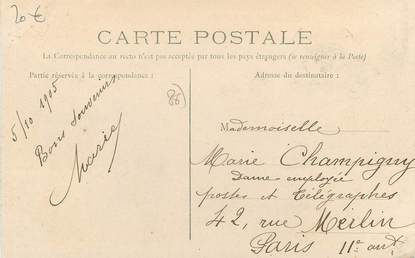 20 €
CARTE POSTALE
La Correspondance au recto n'est pas acceptée par tous les pays étrangers (se renseigner à la Poste)
Partie réservée à la correspondance :
Adresse du destinataire :
86
5/10 1905
Bons Souvenirs
Marie
Mademoiselle
Marie Champigny
Dame employée
postes et Télégraphes
42, rue Merlin
Paris 11e arrt